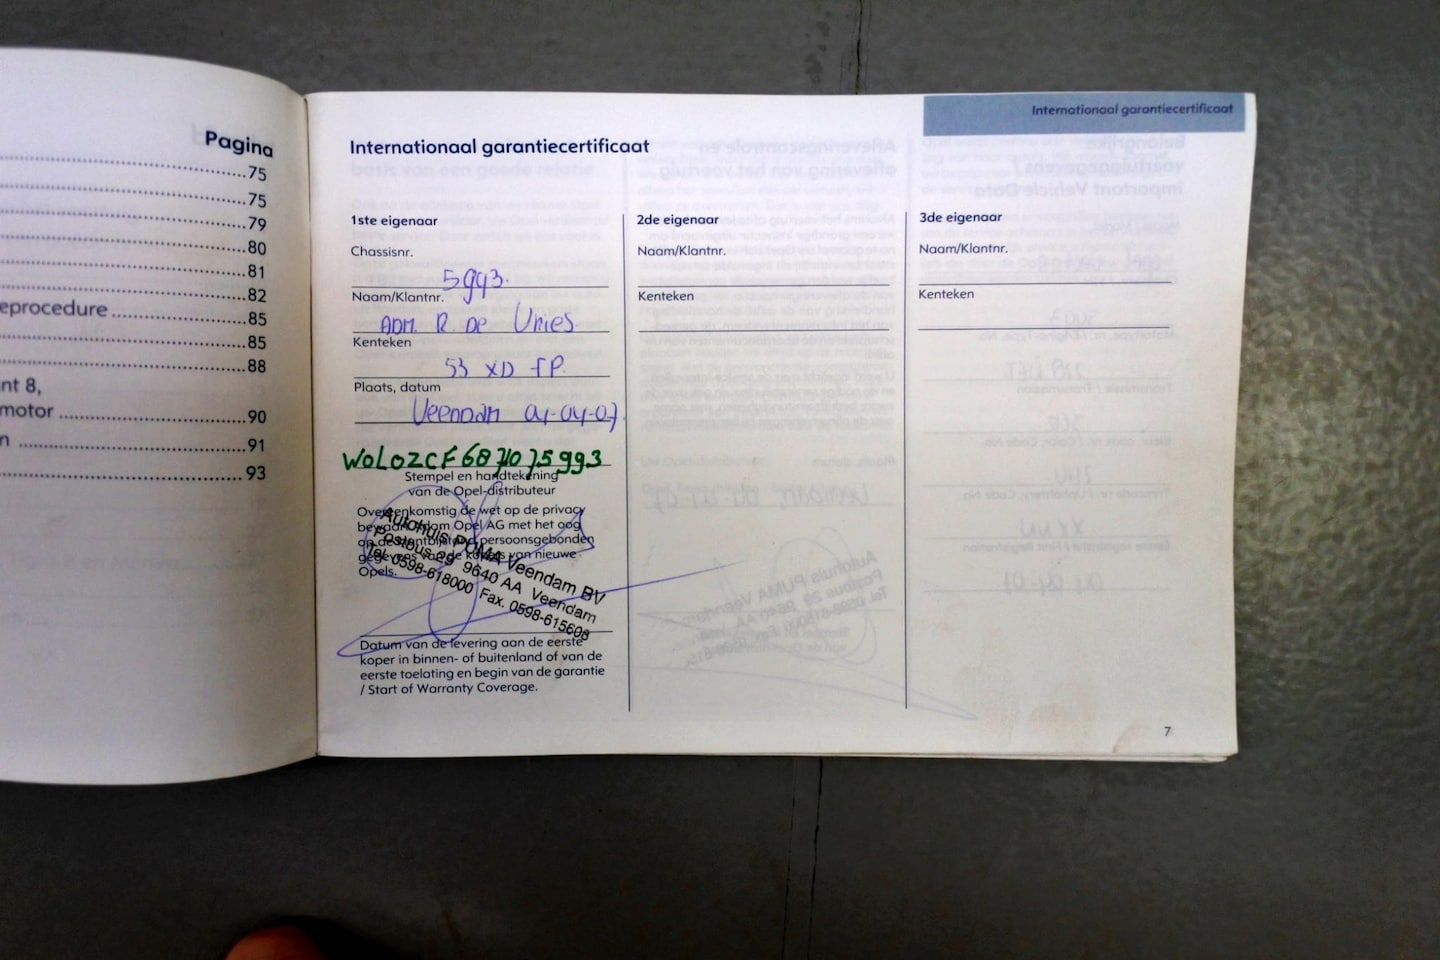 Pagina
75
75
79
80
81
82
eprocedure 85
85
88
nt 8,
motor 90
n 91
93
Internationaal garantiecertificaat
Internationaal garantiecertificaat
1ste eigenaar
Chassisnr.
5993.
Naam/Klantnr.
ADM. R DE Vries.
Kenteken
53 XD FP.
Plaats, datum
Veendam 04-04-07.
W0L0ZCF6871075993
Stempel en handtekening
van de Opel-distributeur
Overeenkomstig de wet op de privacy
Opel AG met het oog
persoonsgebonden
van nieuwe
Opels.
Autohuis PUMA Veendam BV
Postbus 29 9640 AA Veendam
Tel. 0598-618000 Fax. 0598-615608
Datum van de levering aan de eerste
koper in binnen- of buitenland of van de
eerste toelating en begin van de garantie
/ Start of Warranty Coverage.
2de eigenaar
Naam/Klantnr.
Kenteken
3de eigenaar
Naam/Klantnr.
Kenteken
7